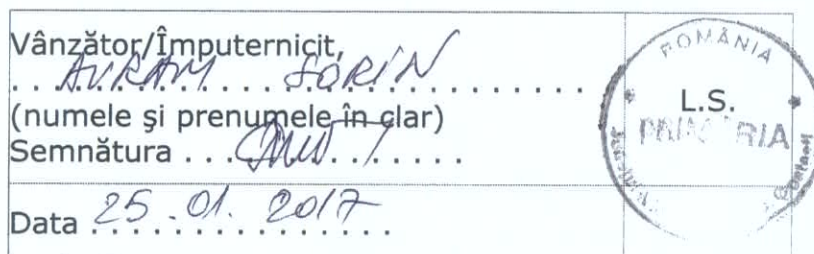 Vânzător/Împuternicit,
AVRAM SORIN
(numele şi prenumele în clar)
Semnătura . . . . . . . . . . . .
Data 25.01.2017
ROMÂNIA
L.S.
PRIMĂRIA